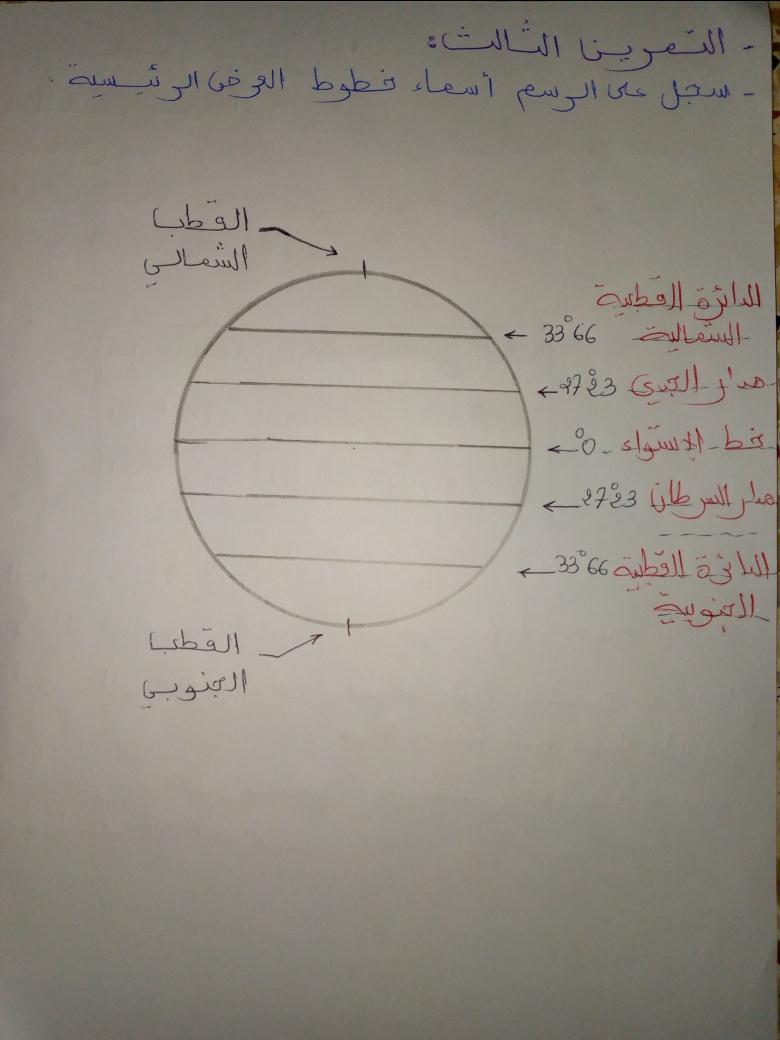 - التمرين الثالث:
- سجل على الرسم أسماء خطوط العرض الرئيسية.
القطب
الشمالي
الدائرة القطبية
الشمالية 33°66 ←
مدار الجدي 27°23 ←
خط الإستواء 0° ←
مدار السرطان 27°23 ←
الدائرة القطبية 33°66 ←
الجنوبية
القطب
الجنوبي